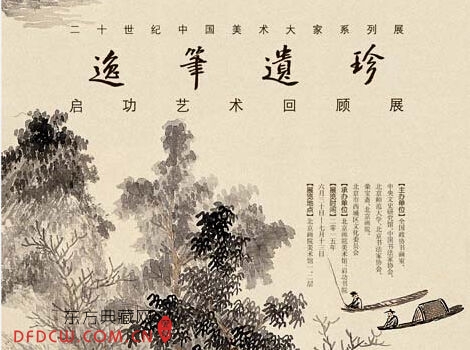 二十世纪中国美术大家系列展
逸筆遺珍
启功艺术回顾展
【主办单位】全国政协书画室、
中央文史研究馆、中国书法家协会、
北京师范大学、北京书法家协会、
荣宝斋、北京画院、
北京市西城区文化委员会
【承办单位】北京画院美术馆、启功书院
【展览时间】二〇一五年
六月三十日—七月十三日
【展览地点】北京画院美术馆一、二层
东方典藏网
DFDCW.COM.CN